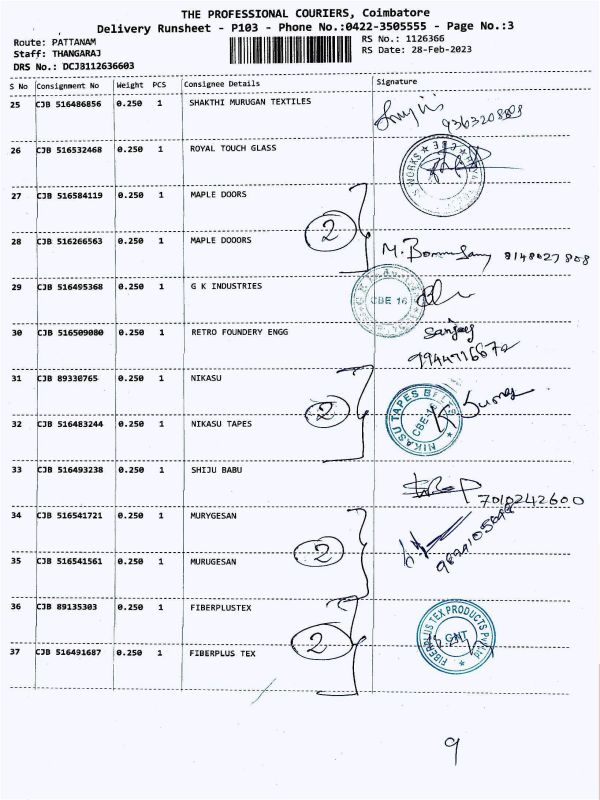 THE PROFESSIONAL COURIERS, Coimbatore
Delivery Runsheet - P103 - Phone No.:0422-3505555 - Page No.:3
Route: PATTANAM
RS No.: 1126366
Staff: THANGARAJ
RS Date: 28-Feb-2023
DRS No.: DCJB112636603
S No Consignment No Weight PCS Consignee Details Signature
25 CJB 516486856 0.250 1 SHAKTHI MURUGAN TEXTILES
26 CJB 516532468 0.250 1 ROYAL TOUCH GLASS
WORKS CBE
27 CJB 516584119 0.250 1 MAPLE DOORS
2
28 CJB 516266563 0.250 1 MAPLE DOOORS
8148027808
29 CJB 516495368 0.250 1 G K INDUSTRIES
CBE 16
30 CJB 516509080 0.250 1 RETRO FOUNDERY ENGG
Sanjay
31 CJB 89330765 0.250 1 NIKASU
2
NIKASU TAPES BELTS
CBE-16
32 CJB 516483244 0.250 1 NIKASU TAPES
33 CJB 516493238 0.250 1 SHIJU BABU
7010242600
34 CJB 516541721 0.250 1 MURYGESAN
2
35 CJB 516541561 0.250 1 MURUGESAN
36 CJB 89135303 0.250 1 FIBERPLUSTEX
2
FIBERPLUS TEX PRODUCTS Pvt Ltd
37 CJB 516491687 0.250 1 FIBERPLUS TEX
9